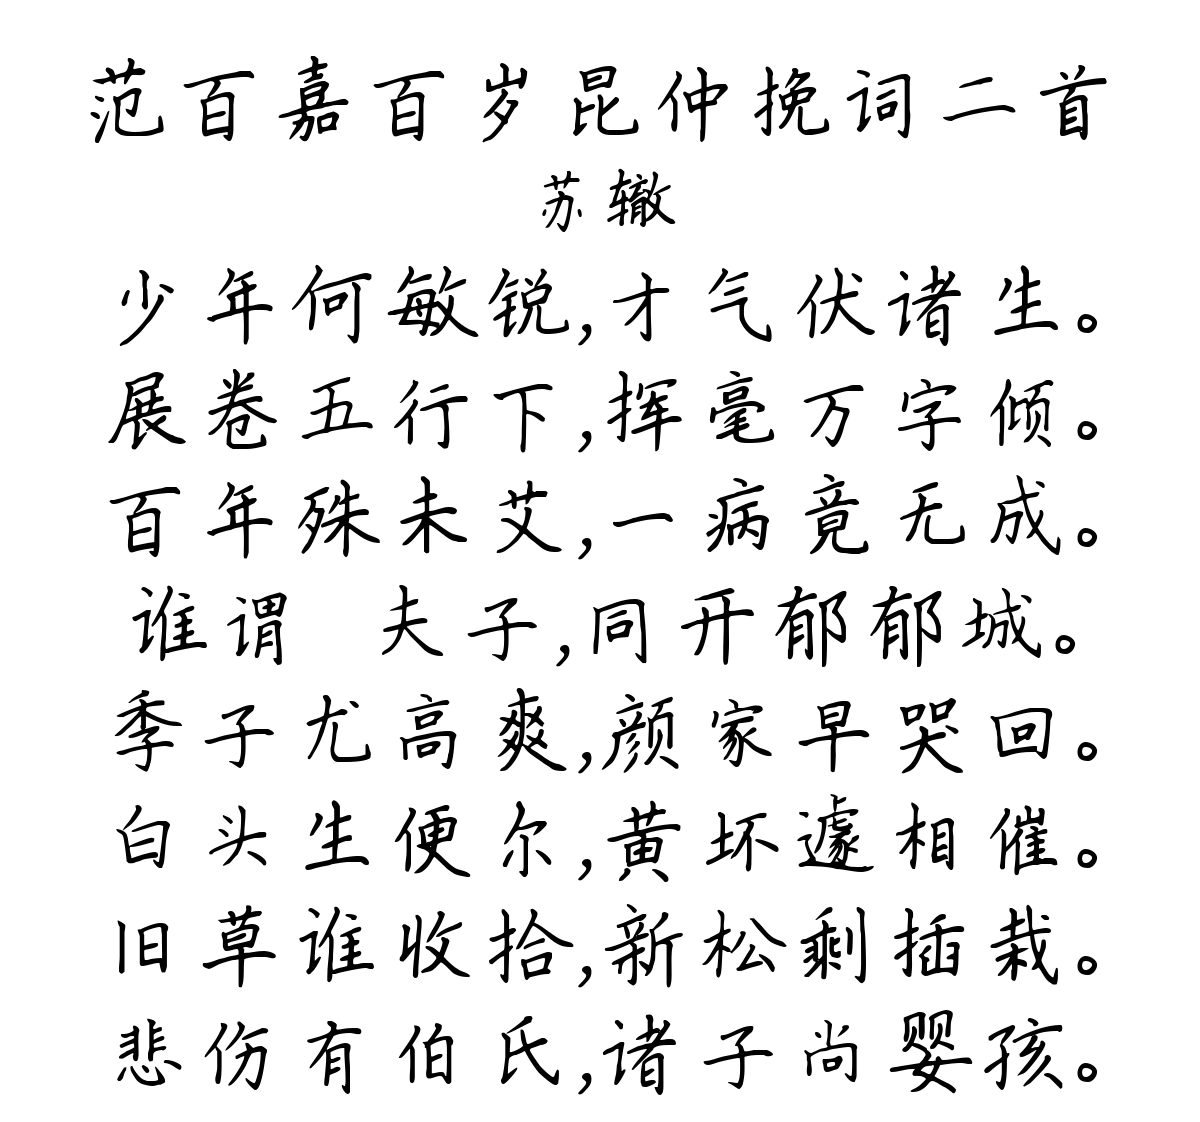 范百嘉百岁昆仲挽词二首
苏辙
少年何敏锐,才气伏诸生。
展卷五行下,挥毫万字倾。
百年殊未艾,一病竟无成。
谁谓 夫子,同开郁郁城。
季子尤高爽,颜家早哭回。
白头生便尔,黄坏遽相催。
旧草谁收拾,新松剩插栽。
悲伤有伯氏,诸子尚婴孩。